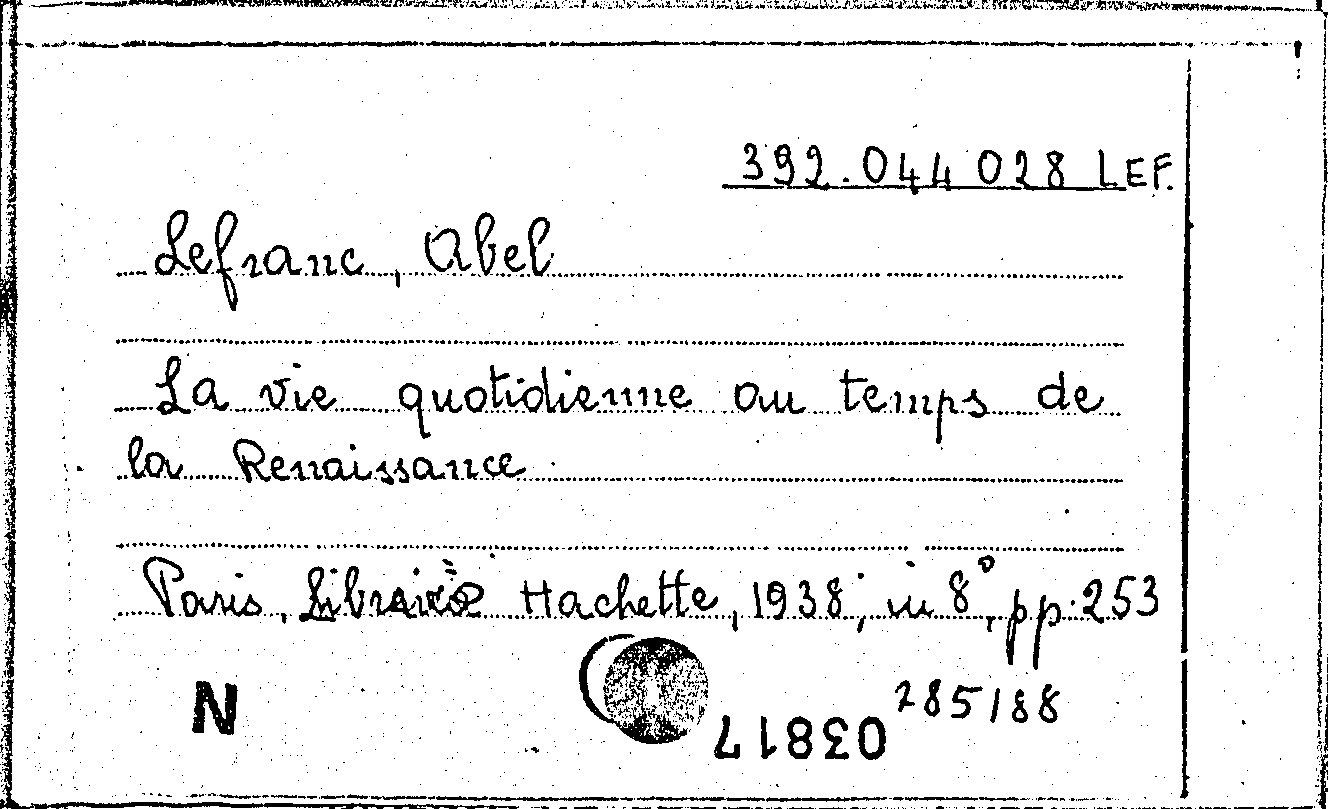 392.044 028 LEF.
Lefranc, Abel
La vie quotidienne au temps de
la Renaissance
Paris, Librairie Hachette, 1938, in 8°, pp. 253
N
03817
285/88